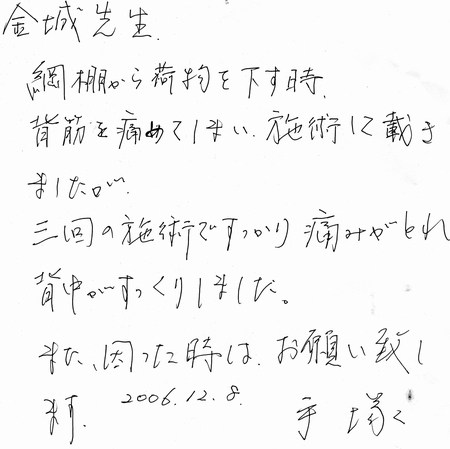 金城先生.
網棚から荷物を下す時.
背筋を痛めてしまい.施術して戴き
ましたが.
三回の施術ですっかり痛みがとれ
背中がすっくりしました。
また、困った時は.お願い致し
ます. 2006.12.8. 手塚